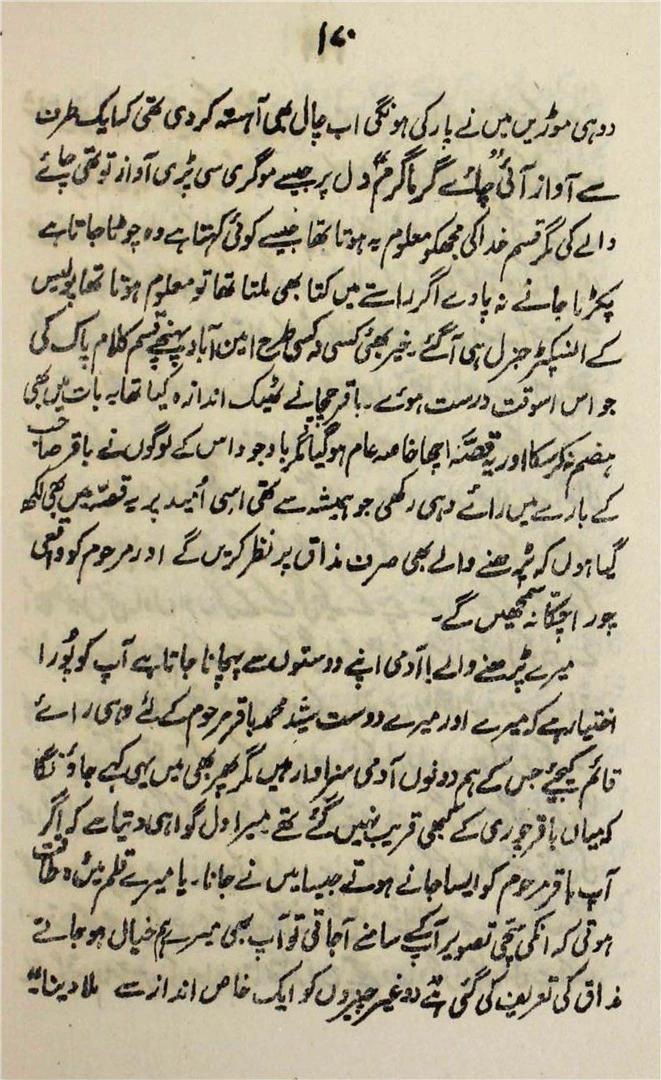 ۱۷۰
دو ہی موڑیں میں نے پار کی ہونگی اب چال بھی آہستہ کر دی تھی کہ ایک طرف
سے آواز آئی "چائے گرما گرم" دل پر جیسے موگری سی پڑی آواز تو تھی چائے
والے کی مگر قسم خدا کی مجھکو معلوم یہ ہوتا تھا جیسے کوئی کہتا ہے وہ چوٹٹا جاتا ہے
پکڑنا جانے نہ پاوے اگر راستے میں کتا بھی ملتا تھا تو معلوم ہوتا تھا پولیس
کے انسپکٹر جنرل ہی آ گئے۔ خیر بھئی کسی نہ کسی طرح امین آباد پہنچے قسم کلام پاک کی
جو اس اسوقت درست ہوئے۔ باقر چچا نے ٹھیک اندازہ کیا تھا یہ بات میں بھی
ہضم نہ کر سکا اور یہ قصّہ اچھا خاصہ عام ہو گیا مگر باوجود اس کے لوگوں نے باقر صاحب
کے بارے میں رائے وہی رکھی جو ہمیشہ سے تھی اسی اُمید پر یہ قصّہ میں بھی لکھ
گیا ہوں کہ پڑھنے والے بھی صرف مذاق پر نظر کریں گے اور مرحوم کو واقعی
چور اچکّا نہ سمجھیں گے۔
میرے پڑھنے والے با آدمی اپنے دوستوں سے پہچانا جاتا ہے آپ کو پُورا
اختیار ہے کہ میرے اور میرے دوست سیّد محمد باقر مرحوم کے لئے وہی رائے
قائم کیجئے جس کے ہم دونوں آدمی سزاوار ہیں مگر پھر بھی میں یہی کہے جاؤنگا
کہ میاں باقر چوری کے کبھی قریب نہیں گئے تھے میرا دل گواہی دیتا ہے کہ اگر
آپ باقر مرحوم کو ایسا جانے ہوتے جیسا میں نے جانا۔ یا میرے قلم میں وہ طاقت
ہوتی کہ انکی سچّی تصویر آپکے سامنے آ جاتی تو آپ بھی میرے ہم خیال ہو جاتے
مذاق کی تعریف کی گئی ہے "دو غیر چیزوں کو ایک خاص انداز سے ملا دینا"